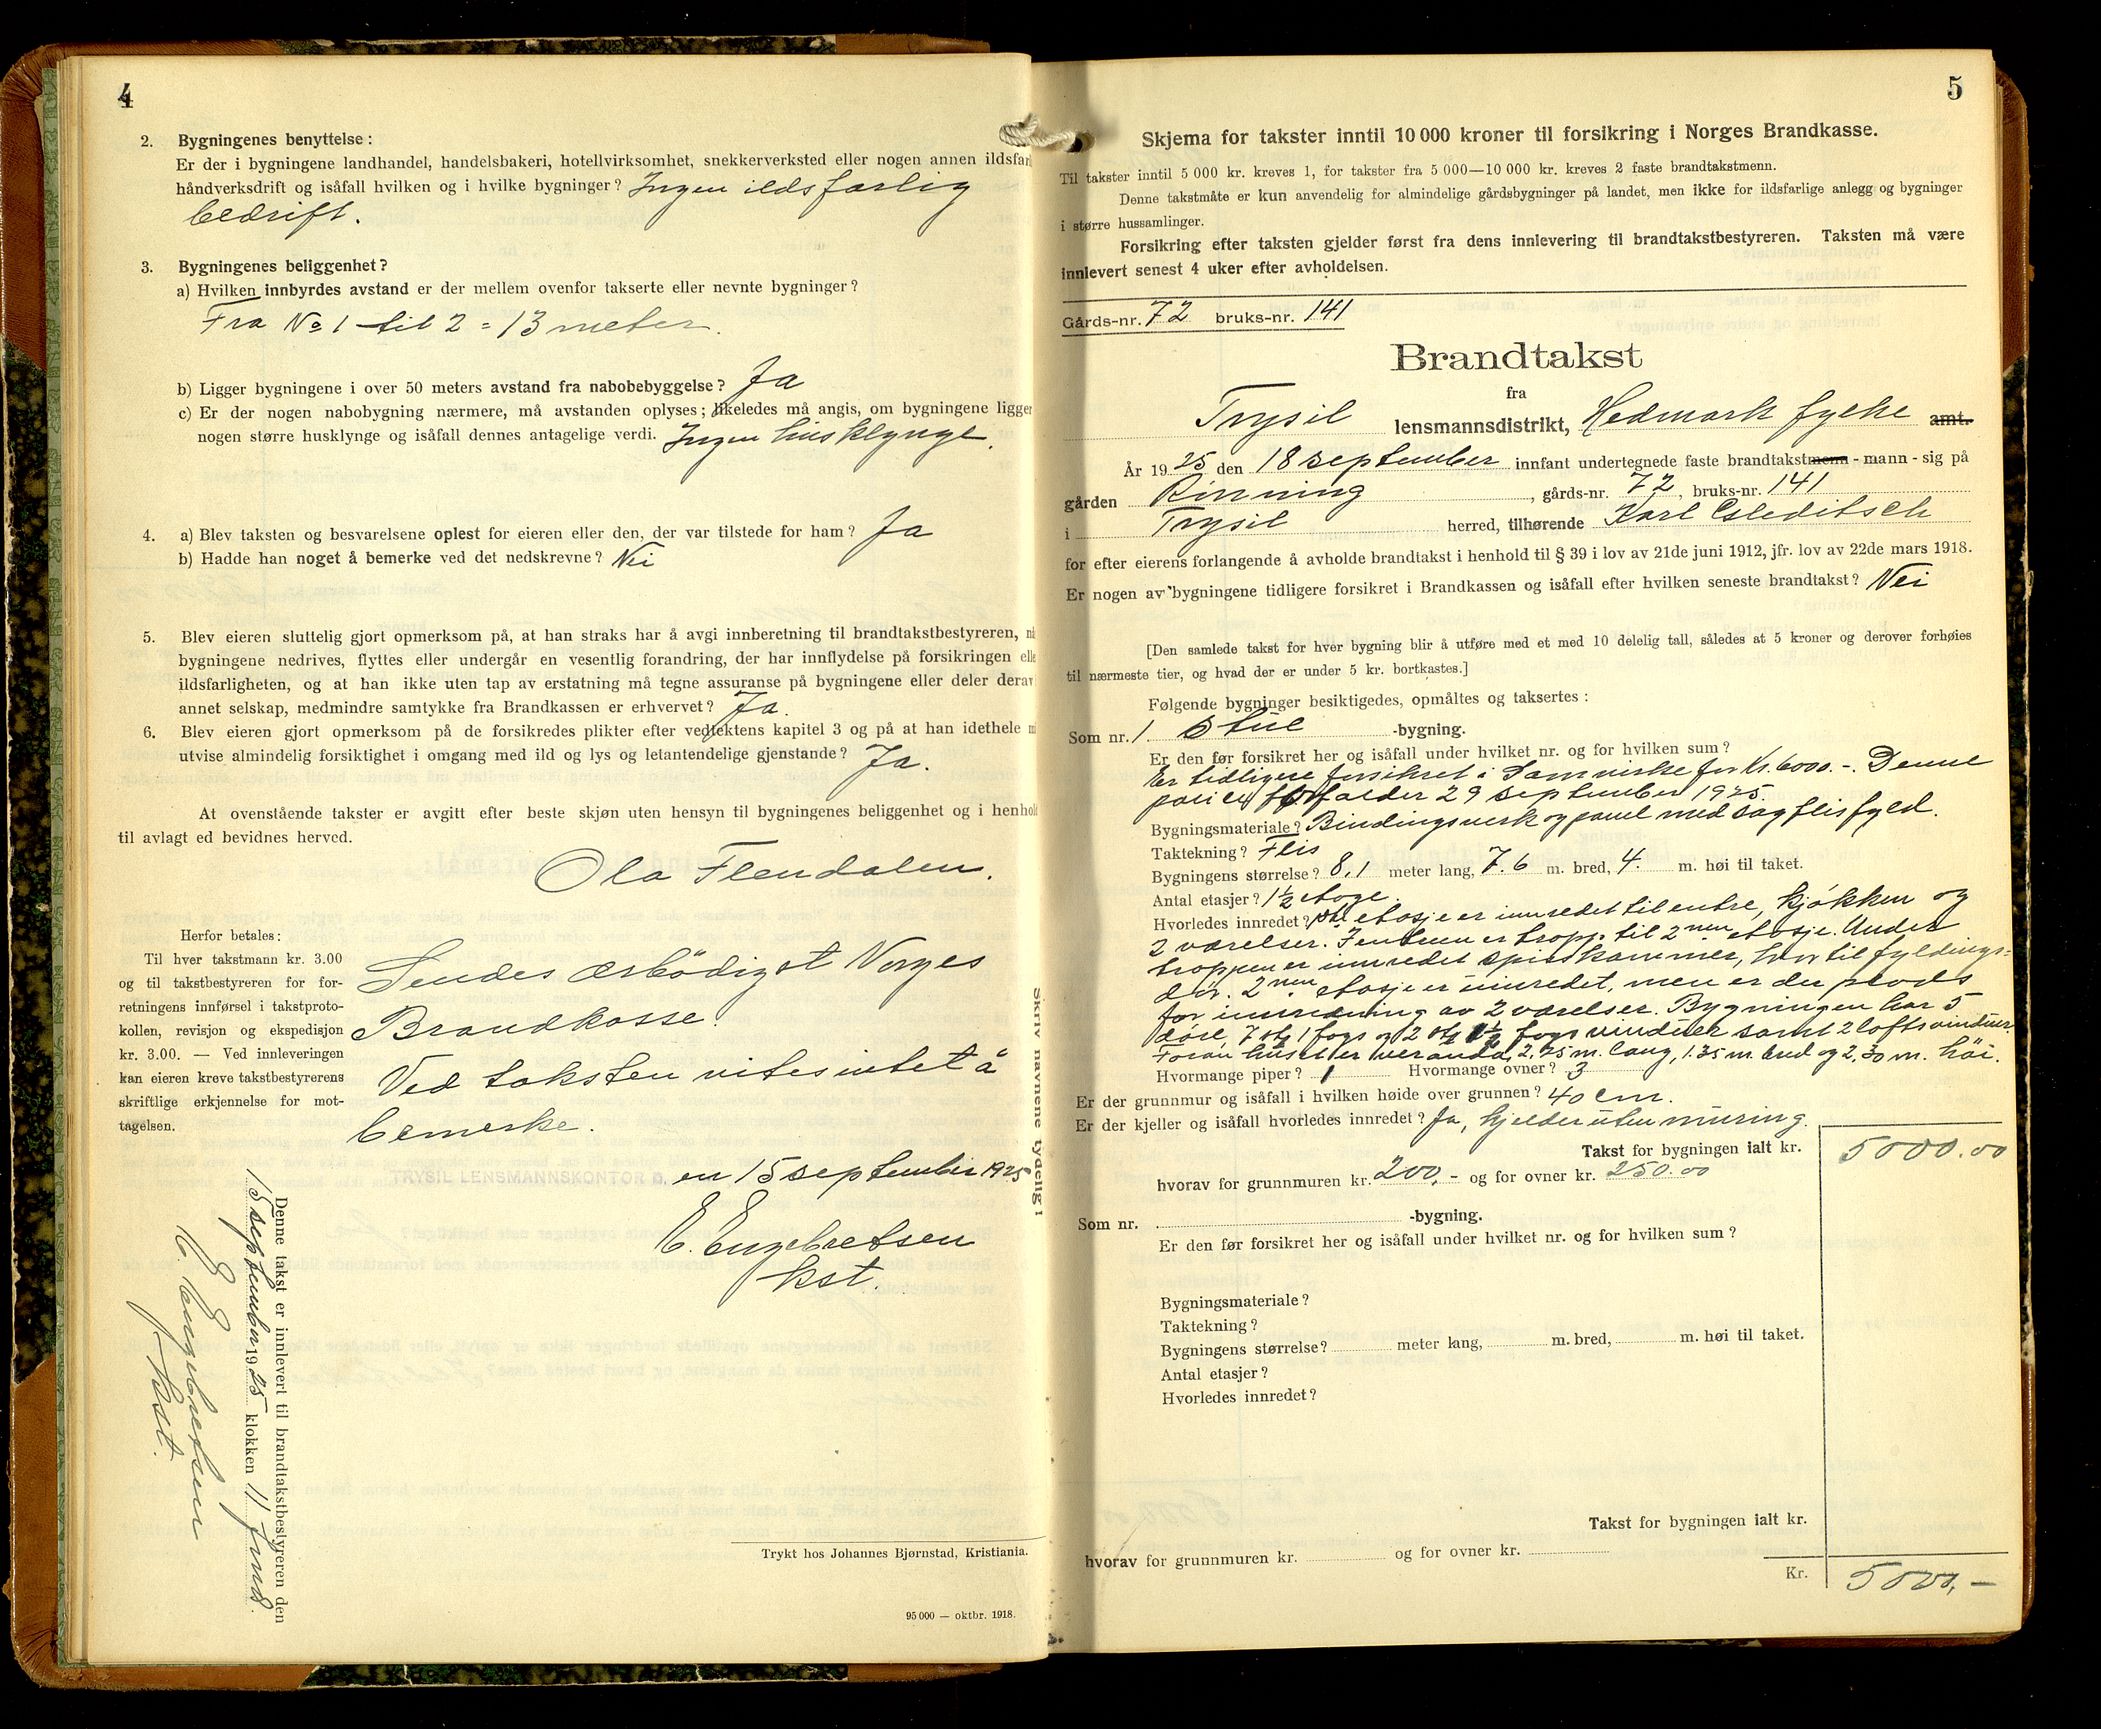 4
2. Bygningenes benyttelse:
Er der i bygningene landhandel, handelsbakeri, hotellvirksomhet, snekkerverksted eller nogen annen ildsfar
håndverksdrift og isåfall hvilken og i hvilke bygninger? Ingen ildsfarlig
bedrift.
3. Bygningenes beliggenhet?
a) Hvilken innbyrdes avstand er der mellem ovenfor takserte eller nevnte bygninger?
Fra No 1 til 2 = 13 meter.
b) Ligger bygningene i over 50 meters avstand fra nabobebyggelse? Ja
c) Er der nogen nabobygning nærmere, må avstanden oplyses; likeledes må angis, om bygningene ligger
nogen større husklynge og isåfall dennes antagelige verdi. Ingen husklynge.
4. a) Blev taksten og besvarelsene oplest for eieren eller den, der var tilstede for ham? Ja
b) Hadde han noget å bemerke ved det nedskrevne? Nei
5. Blev eieren sluttelig gjort opmerksom på, at han straks har å avgi innberetning til brandtakstbestyreren, nå
bygningene nedrives, flyttes eller undergår en vesentlig forandring, der har innflydelse på forsikringen elle
ildsfarligheten, og at han ikke uten tap av erstatning må tegne assuranse på bygningene eller deler derav
annet selskap, medmindre samtykke fra Brandkassen er erhvervet? Ja.
6. Blev eieren gjort opmerksom på de forsikredes plikter efter vedtektens kapitel 3 og på at han idethele m
utvise almindelig forsiktighet i omgang med ild og lys og letantendelige gjenstande? Ja.
At ovenstående takster er avgitt efter beste skjøn uten hensyn til bygningenes beliggenhet og i henhold
til avlagt ed bevidnes herved.
Ola Flendalen.
Herfor betales:
Til hver takstmann kr. 3.00
og til takstbestyreren for for-
retningens innførsel i takstproto-
kollen, revisjon og ekspedisjon
kr. 3.00. — Ved innleveringen
kan eieren kreve takstbestyrerens
skriftlige erkjennelse for mot-
tagelsen.
Sendes ærbödigst Norges
Brandkasse.
Ved taksten vites intet å
bemerke.
TRYSIL LENSMANNSKONTOR D. en 15 september 1925
E. Engebretsen
kst.
Denne takst er innlevert til brandtakstbestyreren den
15 september 1925 klokken 11 fmd.
E. Engebretsen
kst.
Skriv navnene tydelig!
Trykt hos Johannes Bjørnstad, Kristiania.
95 000 — oktbr. 1918.
5
Skjema for takster inntil 10 000 kroner til forsikring i Norges Brandkasse.
Til takster inntil 5 000 kr. kreves 1, for takster fra 5 000—10 000 kr. kreves 2 faste brandtakstmenn.
Denne takstmåte er kun anvendelig for almindelige gårdsbygninger på landet, men ikke for ildsfarlige anlegg og bygninger
i større hussamlinger.
Forsikring efter taksten gjelder først fra dens innlevering til brandtakstbestyreren. Taksten må være
innlevert senest 4 uker efter avholdelsen.
Gårds-nr. 72 bruks-nr. 141
Brandtakst
fra
Trysil lensmannsdistrikt, Hedmark fylke amt.
År 1925 den 18 september innfant undertegnede faste brandtakstmenn - mann - sig på
gården Rinning, gårds-nr. 72, bruks-nr. 141
i Trysil herred, tilhørende Karl Gleditsch
for efter eierens forlangende å avholde brandtakst i henhold til § 39 i lov av 21de juni 1912, jfr. lov av 22de mars 1918.
Er nogen av bygningene tidligere forsikret i Brandkassen og isåfall efter hvilken seneste brandtakst? Nei
[Den samlede takst for hver bygning blir å utføre med et med 10 delelig tall, således at 5 kroner og derover forhøies
til nærmeste tier, og hvad der er under 5 kr. bortkastes.]
Følgende bygninger besiktigedes, opmåltes og taksertes:
Som nr. 1 Stue -bygning.
Er den før forsikret her og isåfall under hvilket nr. og for hvilken sum?
Er tidligere forsikret i Samvirke for Kr. 6000.-. Denne
police forfalder 29 september 1925.
Bygningsmateriale? Bindingsverk og panel med sagflisfyld.
Taktekning? Flis
Bygningens størrelse? 8,1 meter lang, 7.6 m. bred, 4. m. høi til taket.
Antal etasjer? 1½ etage.
Hvorledes innredet? 1ste etasje er innredet til entre, kjøkken og
2 værelser. I entreen er tropp til 2nen etasje. Under
troppen er innredet spiskammer, hvor til fyldings-
dør. 2nen etasje er uinredet, men er der plads
for innredning av 2 værelser. Bygningen har 5
döre, 7 stk 1 fags og 2 stk 1½ fags vinduer samt 2 loftsvinduer.
Foran huset er veranda, 2,75 m. lang, 1.35 m. bred og 2,30 m. höi.
Hvormange piper? 1 Hvormange ovner? 3
Er der grunnmur og isåfall i hvilken høide over grunnen? 40 cm.
Er der kjeller og isåfall hvorledes innredet? Ja, kjelder uten muring.
Takst for bygningen ialt kr. 5000.00
hvorav for grunnmuren kr. 200,- og for ovner kr. 250.00
Som nr. -bygning.
Er den før forsikret her og isåfall under hvilket nr. og for hvilken sum?
Bygningsmateriale?
Taktekning?
Bygningens størrelse? meter lang, m. bred, m. høi til taket.
Antal etasjer?
Hvorledes innredet?
Takst for bygningen ialt kr.
hvorav for grunnmuren kr. og for ovner kr.
Kr. 5000,-